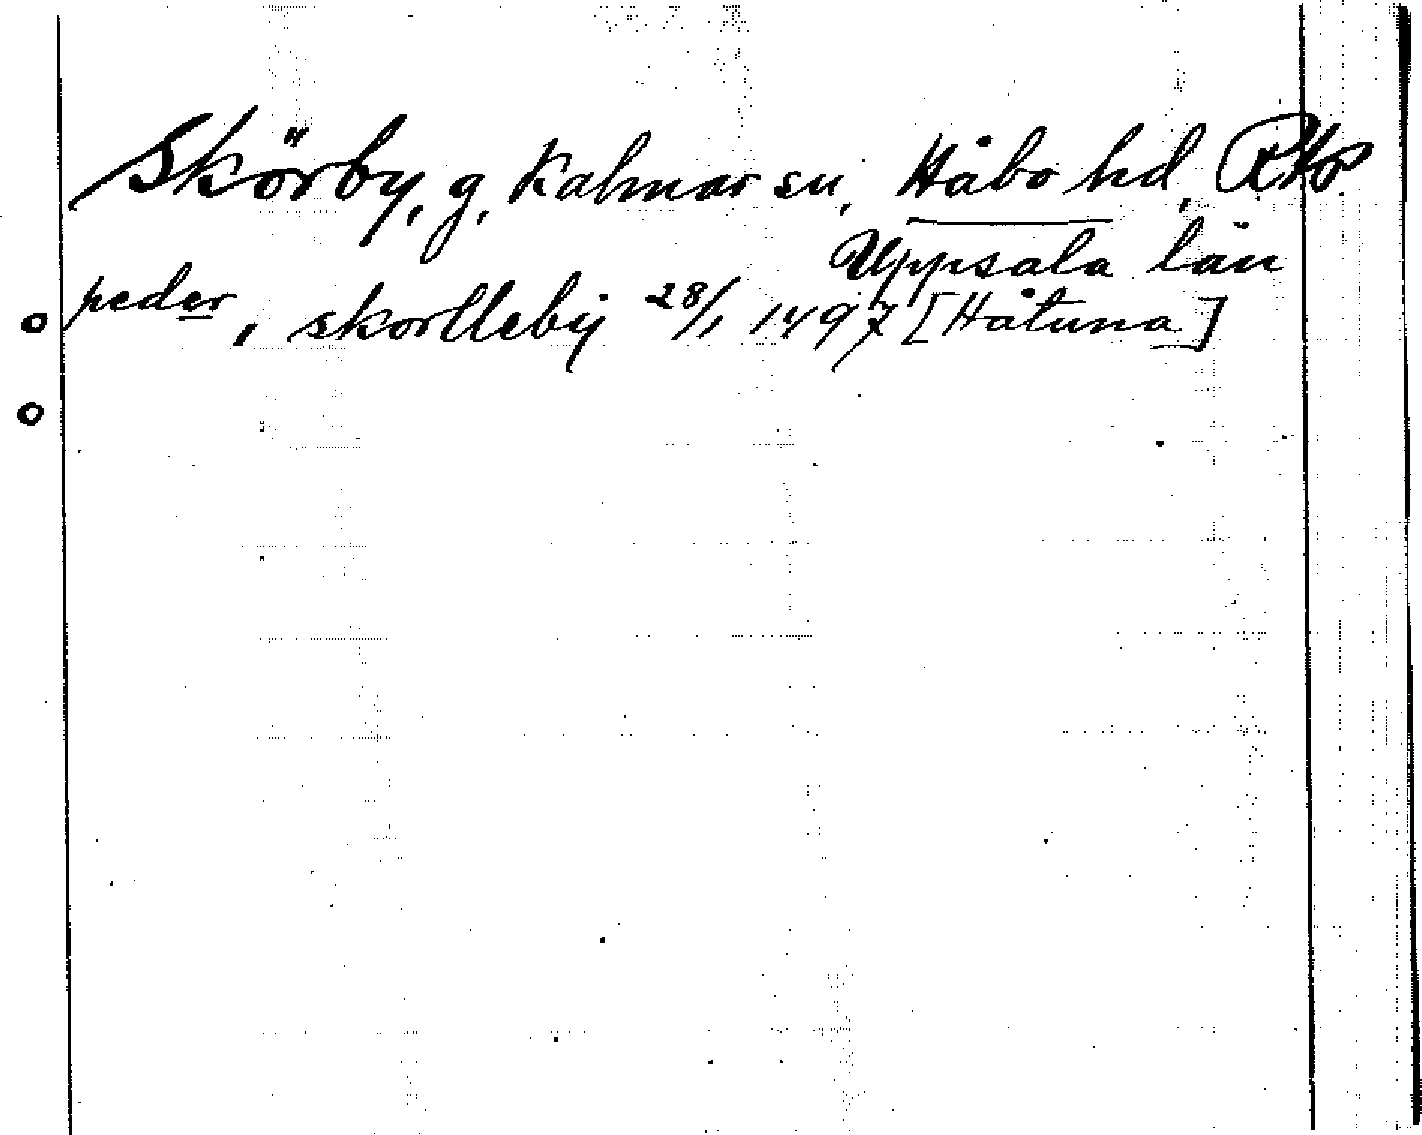 Skörby, g, Kalmar sn, Håbo hd,
Uppsala län
peder, skorlleby 28/1 1497 [Håtuna]